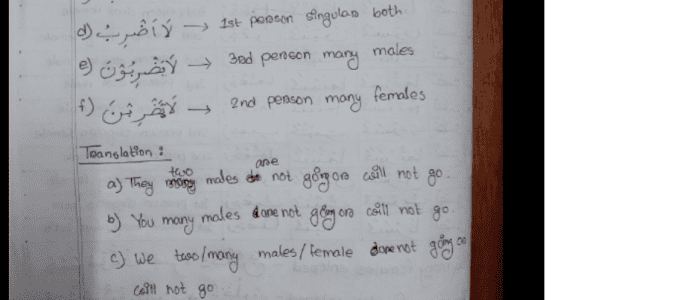 d) لَا اَضْرِبُ → 1st person singular both
e) لَايَضْرِبُوْنَ → 3rd person many males
f) لَاتَضْرِبْنَ → 2nd person many females
Translation :
a) They two males are not going or will not go.
b) You many males are not going or will not go.
c) We two/many males/female are not going or
will not go